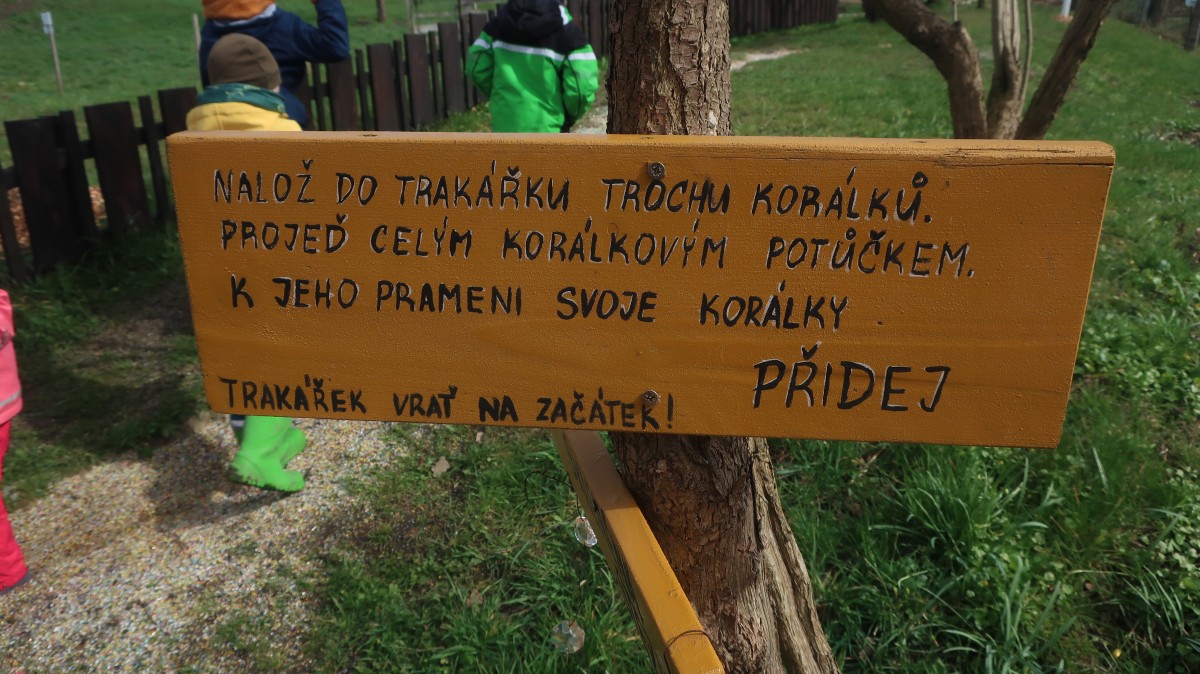 NALOŽ DO TRAKÁŘKU TROCHU KORÁLKŮ.
PROJEĎ CELÝM KORÁLKOVÝM POTŮČKEM.
K JEHO PRAMENI SVOJE KORÁLKY
PŘIDEJ
TRAKÁŘEK VRAŤ NA ZAČÁTEK!